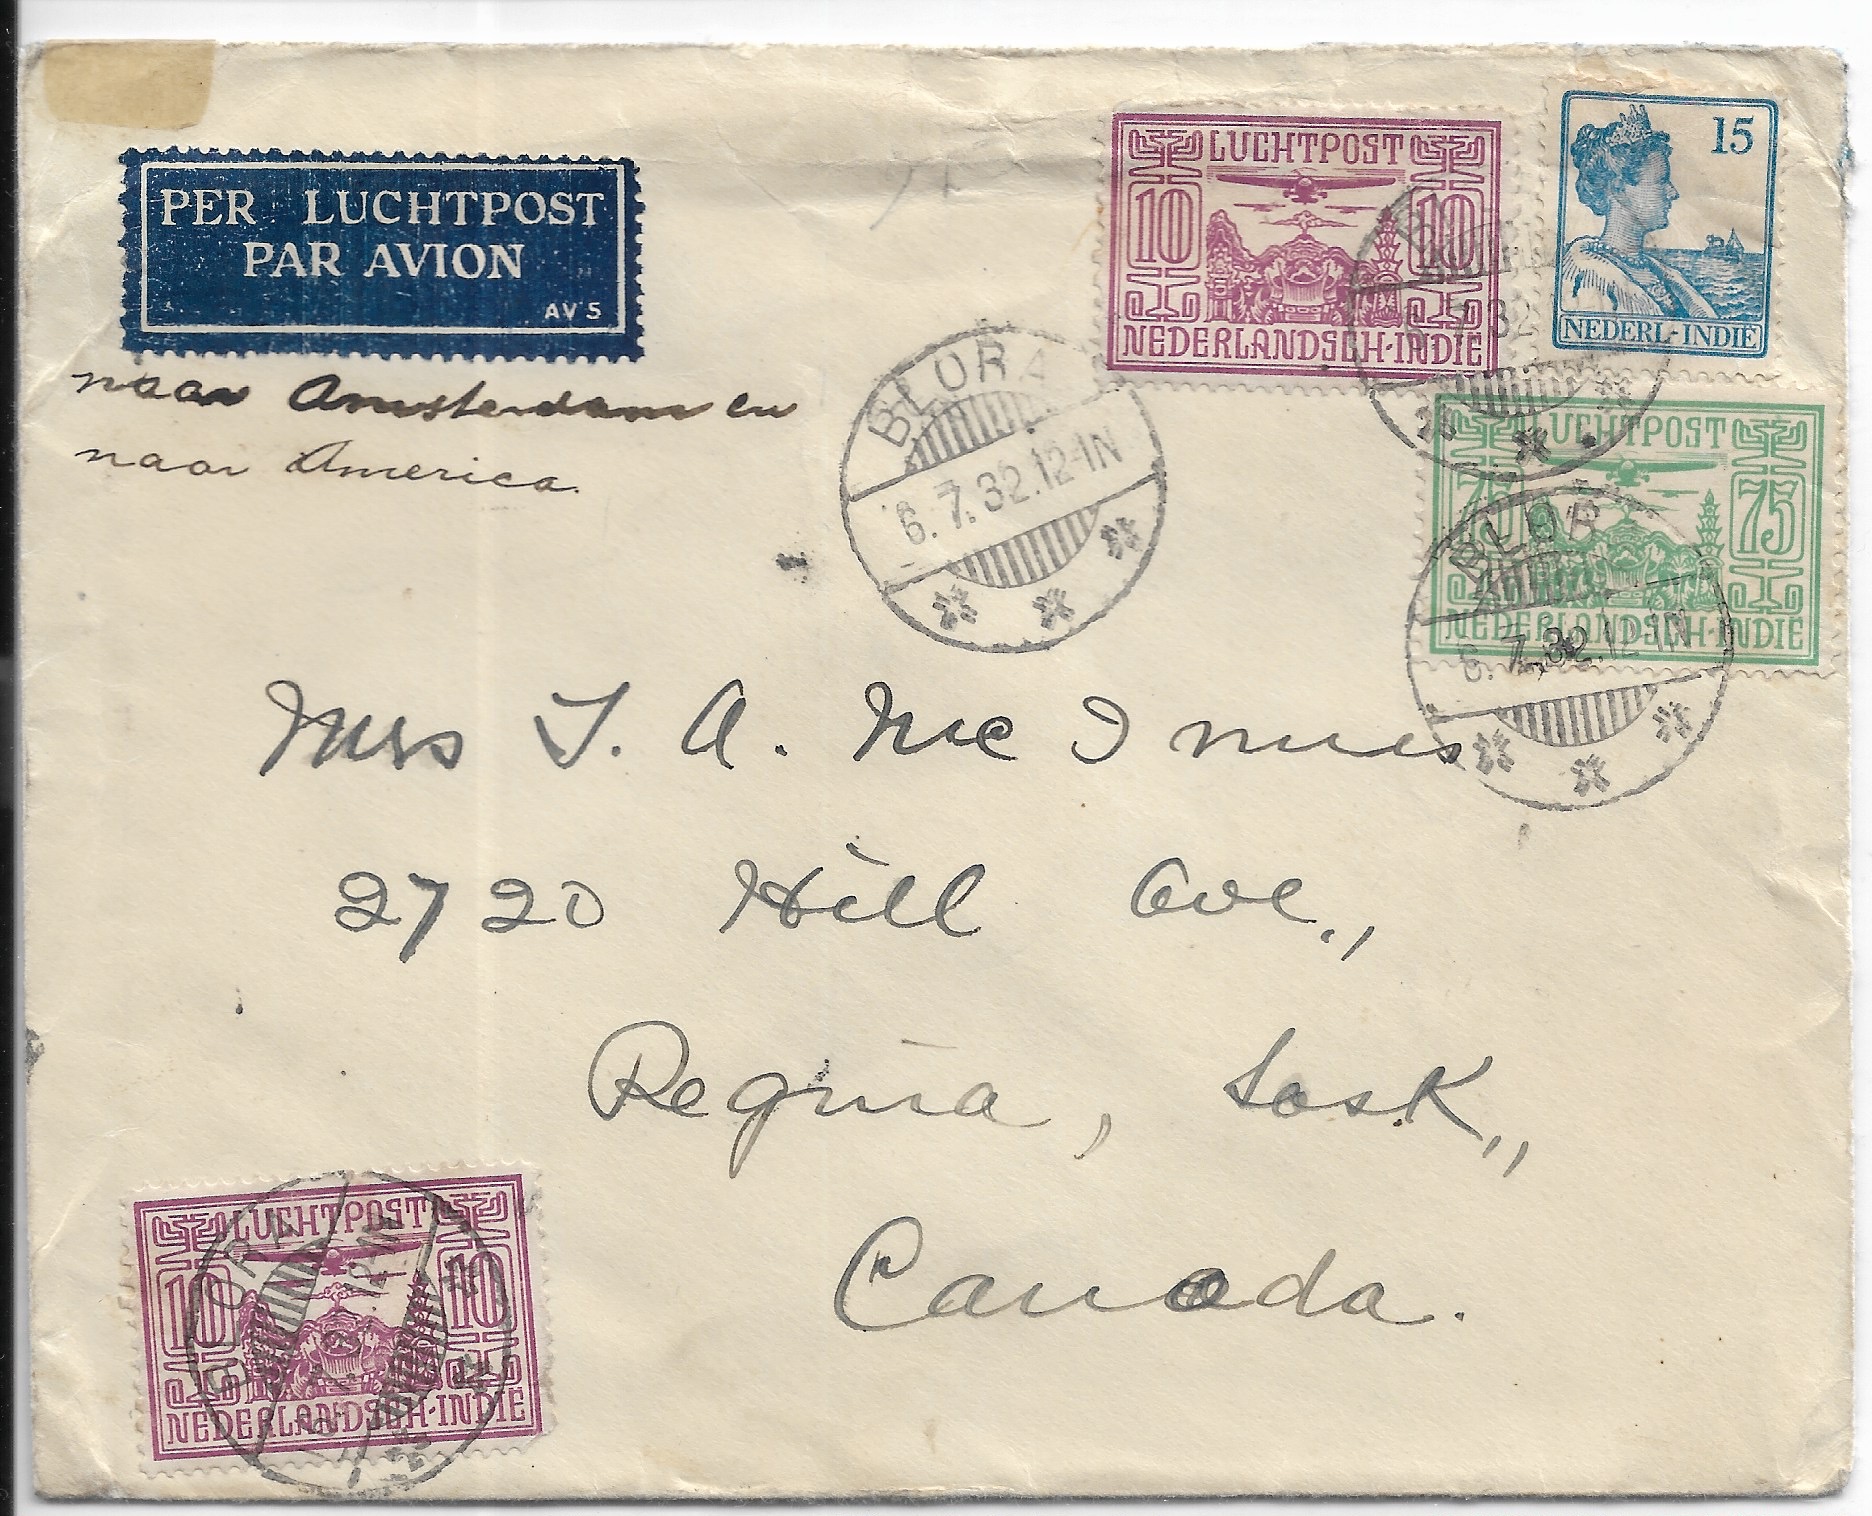 PER LUCHTPOST
PAR AVION
AVS
naar Amsterdam en
naar America.
LUCHTPOST
10 10
NEDERLANDSCH-INDIË
15
NEDERL-INDIË
LUCHTPOST
75 75
NEDERLANDSCH-INDIË
BLORA
6.7.32.12-1N
BLOR
6.7.32.12-1N
7.32
Mrs T. A. McInnes
2720 Hill Ave.,
Regina, Sask,,
Canada.
LUCHTPOST
10 10
NEDERLANDSCH-INDIË
BLORA
12-1N